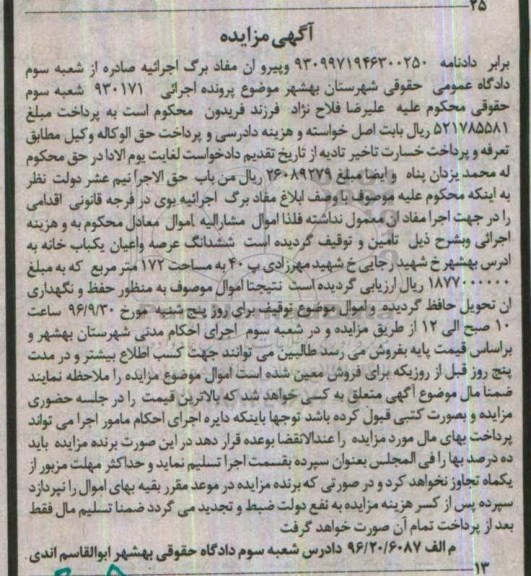 ۲۵
آگهی مزایده
برابر دادنامه ۹۳۰۹۹۷۱۹۴۶۳۰۰۲۵۰ وپیرو ان مفاد برگ اجرائیه صادره از شعبه سوم
دادگاه عمومی حقوقی شهرستان بهشهر موضوع پرونده اجرائی ۹۳۰۱۷۱ شعبه سوم
حقوقی محکوم علیه علیرضا فلاح نژاد فرزند فریدون محکوم است به پرداخت مبلغ
۵۲۱۷۸۵۵۸۱ ریال بابت اصل خواسته و هزینه دادرسی و پرداخت حق الوکاله وکیل مطابق
تعرفه و پرداخت خسارت تاخیر تادیه از تاریخ تقدیم دادخواست لغایت یوم الادا در حق محکوم
له محمد یزدان پناه و ایضا مبلغ ۲۶۰۸۹۲۷۹ ریال من باب حق الاجرا نیم عشر دولت نظر
به اینکه محکوم علیه موصوف با وصف ابلاغ مفاد برگ اجرائیه بوی در فرجه قانونی اقدامی
را در جهت اجرا مفاد ان معمول نداشته فلذا اموال مشارالیه اموال معادل محکوم به و هزینه
اجرائی وبشرح ذیل تامین و توقیف گردیده است ششدانگ عرصه واعیان یکباب خانه به
ادرس بهشهر خ شهید رجایی خ شهید مهرزادی پ ۴۰ به مساحت ۱۷۲ متر مربع که به مبلغ
۱۸۷۷۰۰۰۰۰۰ ریال ارزیابی گردیده است نتیجتا اموال موصوف به منظور حفظ و نگهداری
ان تحویل حافظ گردیده و اموال موضوع توقیف برای روز پنج شنبه مورخ ۹۶/۹/۳۰ ساعت
۱۰ صبح الی ۱۲ از طریق مزایده و در شعبه سوم اجرای احکام مدنی شهرستان بهشهر و
براساس قیمت پایه بفروش می رسد طالبین می توانند جهت کسب اطلاع بیشتر و در مدت
پنج روز قبل از روزیکه برای فروش معین شده است اموال موضوع مزایده را ملاحظه نمایند
ضمنا مال موضوع آگهی متعلق به کسی خواهد شد که بالاترین قیمت را در جلسه حضوری
مزایده و بصورت کتبی قبول کرده باشد توجها باینکه دایره اجرای احکام مامور اجرا می تواند
پرداخت بهای مال مورد مزایده را عندالاقتضا بوعده قرار دهد در این صورت برنده مزایده باید
ده درصد بها را فی المجلس بعنوان سپرده بقسمت اجرا تسلیم نماید و حداکثر مهلت مزبور از
یکماه تجاوز نخواهد کرد و در صورتی که برنده مزایده در موعد مقرر بقیه بهای اموال را نپردازد
سپرده پس از کسر هزینه مزایده به نفع دولت ضبط و تجدید می گردد ضمنا تسلیم مال فقط
بعد از پرداخت تمام آن صورت خواهد گرفت
م الف ۹۶/۲۰/۶۰۸۷ دادرس شعبه سوم دادگاه حقوقی بهشهر ابوالقاسم اندی
۱۳